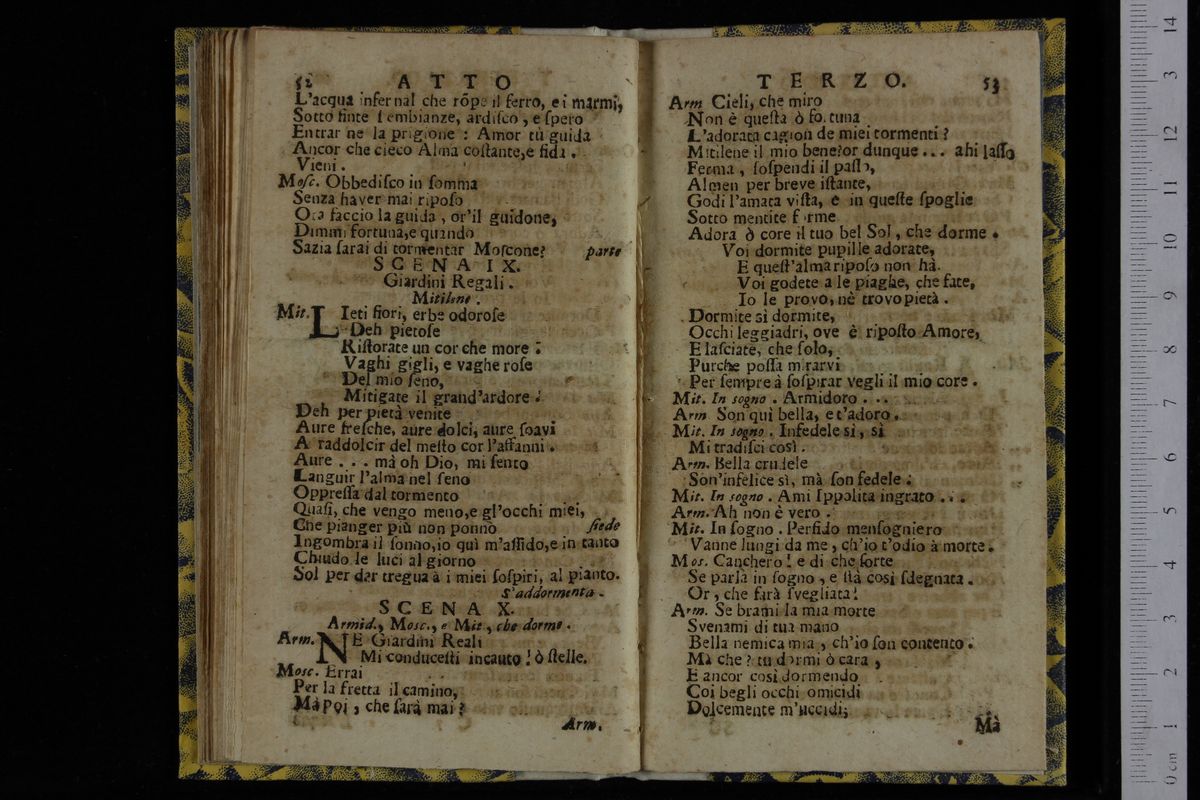 52 ATTO
L'acqua infernal che rõpe il ferro, e i marmi,
Sotto finte ſembianze, ardiſco, e ſpero
Entrar ne la prigione : Amor tù guida
Ancor che cieco Alma coſtante,e fida.
Vieni.
Moſc. Obbediſco in ſomma
Senza haver mai ripoſo
Ora faccio la guida, or'il guidone,
Dimmi fortuna,e quando
Sazia ſarai di tormentar Moſcone? parte
SCENA IX.
Giardini Regali.
Mitilene.
Mit. LIeti fiori, erbe odoroſe
Deh pietoſe
Riſtorate un cor che more :
Vaghi gigli, e vaghe roſe
Del mio ſeno,
Mitigate il grand'ardore :
Deh per pietà venite
Aure freſche, aure dolci, aure ſoavi
A raddolcir del meſto cor l'affanni.
Aure . . . mà oh Dio, mi ſento
Languir l'alma nel ſeno
Oppreſſa dal tormento
Quaſi, che vengo meno,e gl'occhi miei,
Che pianger più non ponno ſiede
Ingombra il ſonno,io quì m'aſſido,e in tanto
Chiudo le luci al giorno
Sol per dar tregua à i miei ſoſpiri, al pianto.
S'addormenta.
SCENA X.
Armid., Mosc., e Mit, che dorme.
Arm. NE Giardini Reali
Mi conduceſti incauto ! ò ſtelle.
Mosc. Errai
Per la fretta il camino,
Mà poi, che ſarà mai ?
Arm.
TERZO. 53
Arm Cieli, che miro
Non è queſta ò fortuna
L'adorata cagion de miei tormenti ?
Mitilene il mio bene?or dunque... ahi laſſo
Ferma, ſoſpendi il paſſo,
Almen per breve iſtante,
Godi l'amata viſta, e in queſte ſpoglie
Sotto mentite forme
Adora ò core il tuo bel Sol, che dorme.
Voi dormite pupille adorate,
E queſt'alma ripoſo non hà.
Voi godete a le piaghe, che fate,
Io le provo, nè trovo pietà.
Dormite sì dormite,
Occhi leggiadri, ove è ripoſto Amore,
E laſciate, che ſolo,
Purche poſſa mirarvi
Per ſempre à ſoſpirar vegli il mio core.
Mit. In sogno. Armidoro . . .
Arm Son quì bella, e t'adoro.
Mit. In sogno. Infedele sì, sì
Mi tradiſci così.
Arm. Bella crudele
Son'infelice sì, mà ſon fedele :
Mit. In sogno. Ami Ippolita ingrato . . .
Arm. Ah non è vero.
Mit. In ſogno. Perfido menſogniero
Vanne lungi da me, ch'io t'odio à morte.
Mos. Canchero! e di che ſorte
Se parla in ſogno, e ſtà così ſdegnata.
Or, che farà ſvegliata!
Arm. Se brami la mia morte
Svenami di tua mano
Bella nemica mia, ch'io ſon contento :
Mà che ? tu dormi ò cara,
E ancor così dormendo
Coi begli occhi omicidi
Dolcemente m'uccidi;
Mà
14
3
12
11
10
9
8
7
6
5
4
3
2
1
0 cm